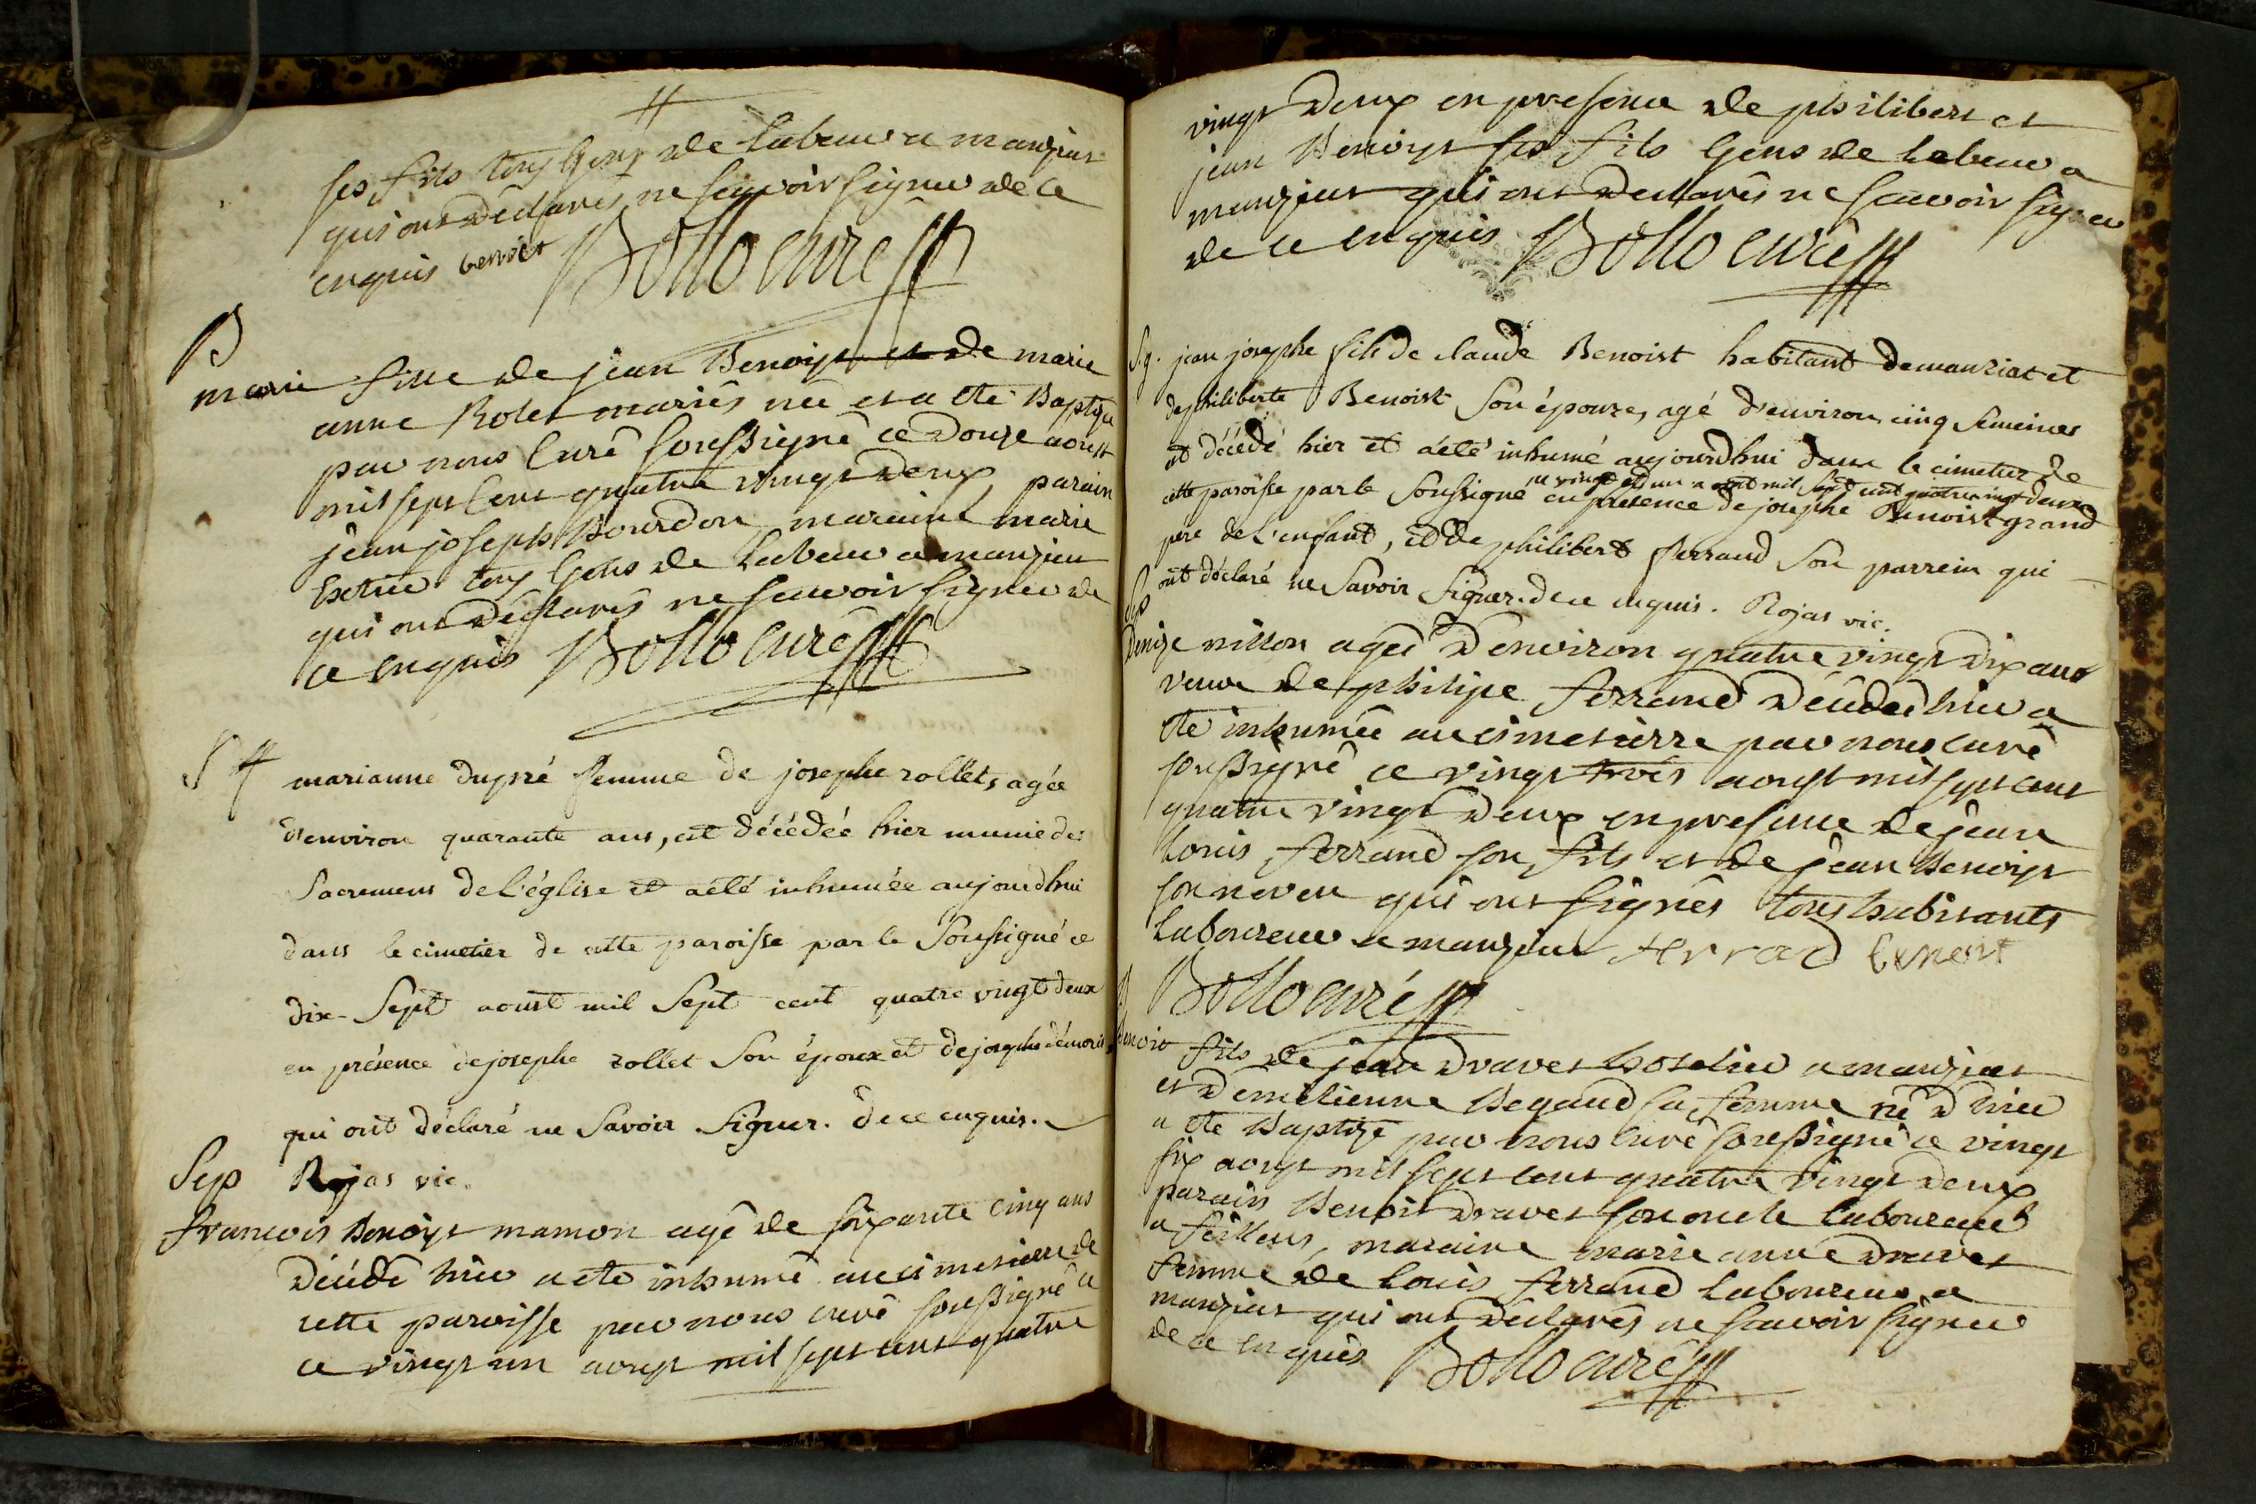 ses fils tous gens de labeur a manziat
qui ont déclarés ne scavoir signer de ce
enquis benoit Bollo curé
B
marie fille de jean Benoist et de marie
anne Rolet mariés née et a été Baptisée
par nous Curé soussigné ce douze aoust
mil sept cent quatre vingt deux, parain
jean joseph Bourdon maraine marie
tous gens de Labeur a manziat
qui ont déclarés ne scavoir signer de
ce enquis Bollo Curé
marianne dupré femme de josephe rollet, agée
d'environ quarante ans, est décédée hier munie des
Sacremens de l'église et a été inhumée aujourdhui
dans le cimetier de cette paroisse par le Soussigné ce
dix-Sept aoust mil Sept cent quatre vingt deux
en présence de josephe rollet Son époux et de josephe
qui ont déclaré ne Savoir Signer. de ce enquis.
Sep Rojas vic.
francois Benoist mamon agé de soixante cinq ans
décédé hier a été inhumé au cimetierre de
cette paroisse par nous curé soussigné
ce vingt un aoust mil sept cent quatre
vingt deux en presence de philibert et
jean Benoist ses fils Gens de labeur a
manziat qui ont declarés ne scavoir signer
de ce enquis Bollo curé
Sep. jean josephe fils de claude Benoist habitant de manziat et
de philiberte Benoist Son épouze, agé d'environ cinq semeines
est décédé hier et a été inhumé aujourdhui dans le cimetier de
ce vingt et un aout mil Sept cent quatre vingt deux
cette paroisse par le Soussigné en présence de josephe Benoist grand
pere de l'enfant, et de philibert ferrand Son parrein qui
ont déclaré ne Savoir Signer. de ce enquis. Rojas vic.
Sep
Denize nillon agée d'environ quatre vingt dix ans
veuve de philipe ferrand décédée hier a
été inhumée au cimetierre par nous curé
soussigné ce vingt trois aoust mil sept cent
quatre vingt deux en presence de jean
Louis ferrand son fils et de jean Benoist
son neveu qui ont signés tous habitants
laboureur a manziat ferrad benoit
Bollo curé
B
benoit fils de jean dravet hotelier a manziat
et d'emelienne Begaud sa femme né d hier
a été Baptizé par nous curé soussigné ce vingt
six aoust mil sept cent quatre vingt deux
parain Benoit dravet son oncle laboureur
a feillens, maraine marie anne dravet
femme de Louis ferrand laboureur a
manziat qui ont declarés ne scavoir signer
de ce enquis Bollo curé